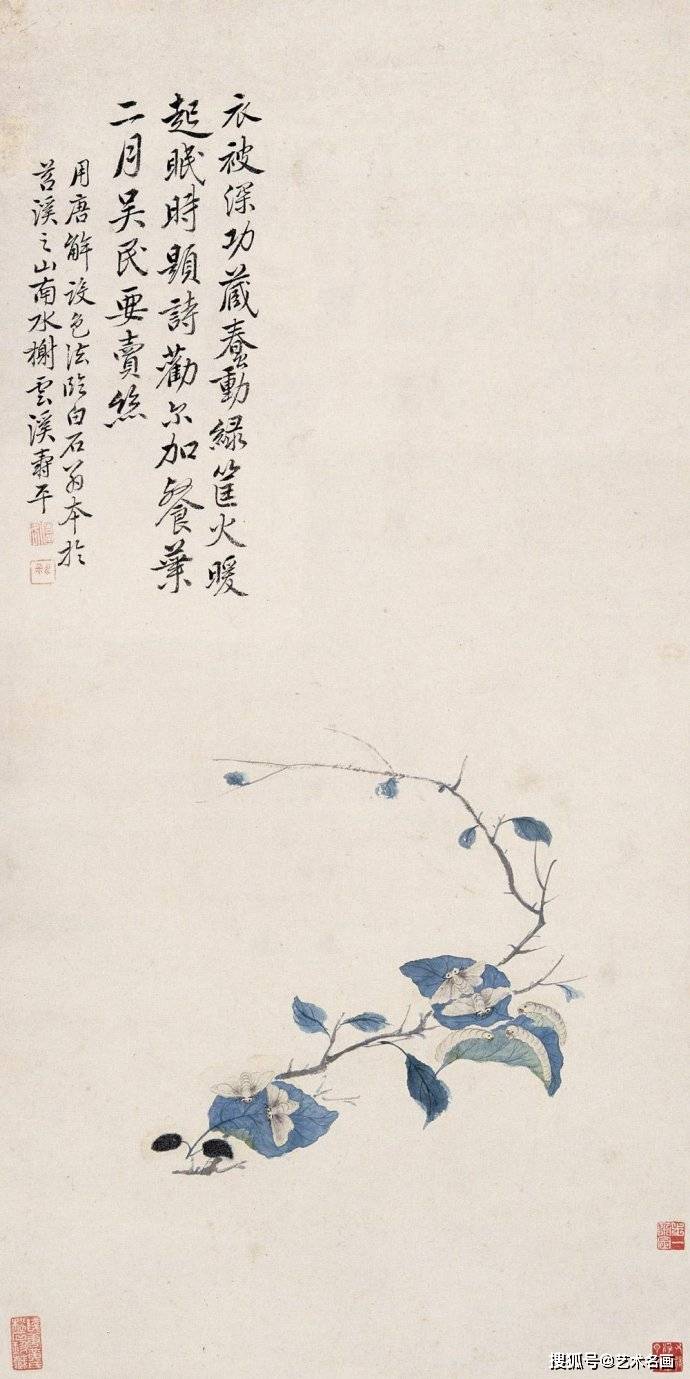 衣被深功藏蠢動綠筐火暖
起眠時題詩勸尔加餐葉
二月吴民要賣絲
用唐解設色法臨白石翁本於
苕溪之山南水榭雲溪壽平
搜狐号@艺术名画